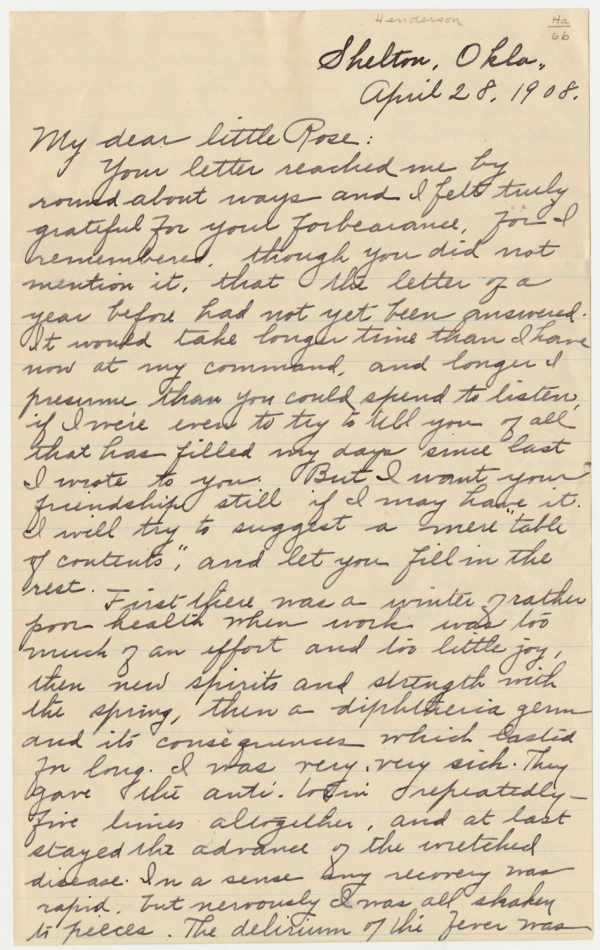 Henderson
Ha
66
Shelton, Okla.,
April 28, 1908.
My dear little Rose:
Your letter reached me by
round about ways and I felt truly
grateful for your forbearance, for I
remembered, though you did not
mention it, that the letter of a
year before had not yet been answered.
It would take longer time than I have
now at my command, and longer I
presume than you could spend to listen,
if I were even to try to tell you of all
that has filled my days since last
I wrote to you. But I want your
friendship still if I may have it.
I will try to suggest a mere "table
of contents", and let you fill in the
rest. First there was a winter of rather
poor health when work was too
much of an effort and too little joy,
then new spirits and strength with
the spring, then a diphtheria germ
and its consequences which lasted
for long. I was very, very sick. They
gave the anti-toxin repeatedly—
five times altogether, and at last
stayed the advance of the wretched
disease. In a sense my recovery was
rapid, but nervously I was all shaken
to peeces. The delirium of the fever was